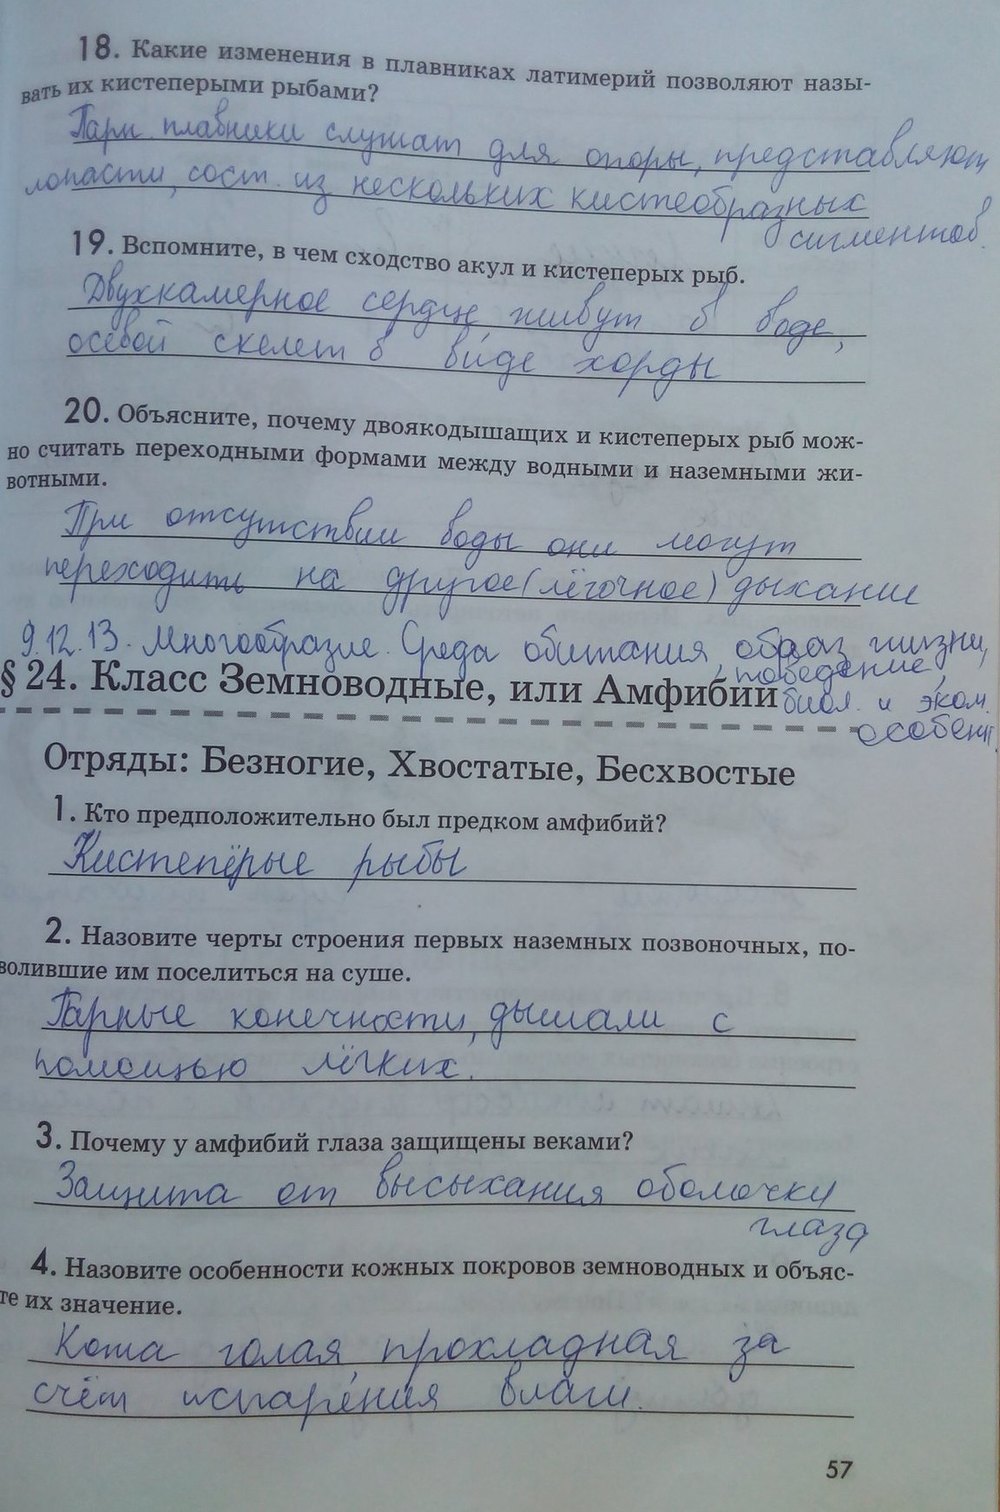 18. Какие изменения в плавниках латимерий позволяют назы-
вать их кистеперыми рыбами?
Парн. плавники служат для опоры, представляют
лопасти, сост. из нескольких кистеобразных
сигментов.
19. Вспомните, в чем сходство акул и кистеперых рыб.
Двухкамерное сердце, живут в воде,
осевой скелет в виде хорды
20. Объясните, почему двоякодышащих и кистеперых рыб мож-
но считать переходными формами между водными и наземными жи-
вотными.
При отсутствии воды они могут
переходить на другое (лёгочное) дыхание
9.12.13. Многообразие. Среда обитания, образ жизни,
поведение,
§ 24. Класс Земноводные, или Амфибии биол. и эком.
особенн.
Отряды: Безногие, Хвостатые, Бесхвостые
1. Кто предположительно был предком амфибий?
Кистепёрые рыбы
2. Назовите черты строения первых наземных позвоночных, по-
волившие им поселиться на суше.
Парные конечности, дышали с
помощью лёгких.
3. Почему у амфибий глаза защищены веками?
Защита от высыхания оболочки
глаза
4. Назовите особенности кожных покровов земноводных и объяс-
те их значение.
Кожа голая, прохладная за
счёт испарения влаги.
57